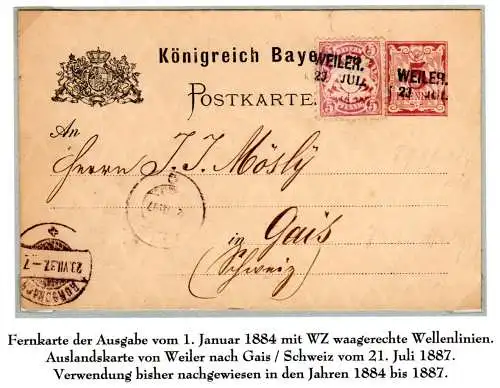 Königreich Baye
WEILER.
23 JUL.
WEILER.
23 JUL.
POSTKARTE.
An
Herrn J. J. Mösly
in Gais
(Schweiz)
23.VII.87.-7
Fernkarte der Ausgabe vom 1. Januar 1884 mit WZ waagerechte Wellenlinien.
Auslandskarte von Weiler nach Gais / Schweiz vom 21. Juli 1887.
Verwendung bisher nachgewiesen in den Jahren 1884 bis 1887.